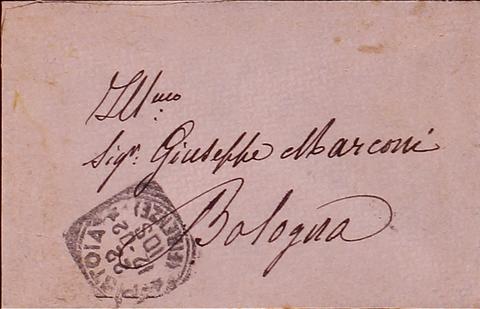 Ill.mo
Sigr. Giuseppe Marconi
Bologna
PISTOIA
(FIRENZE)